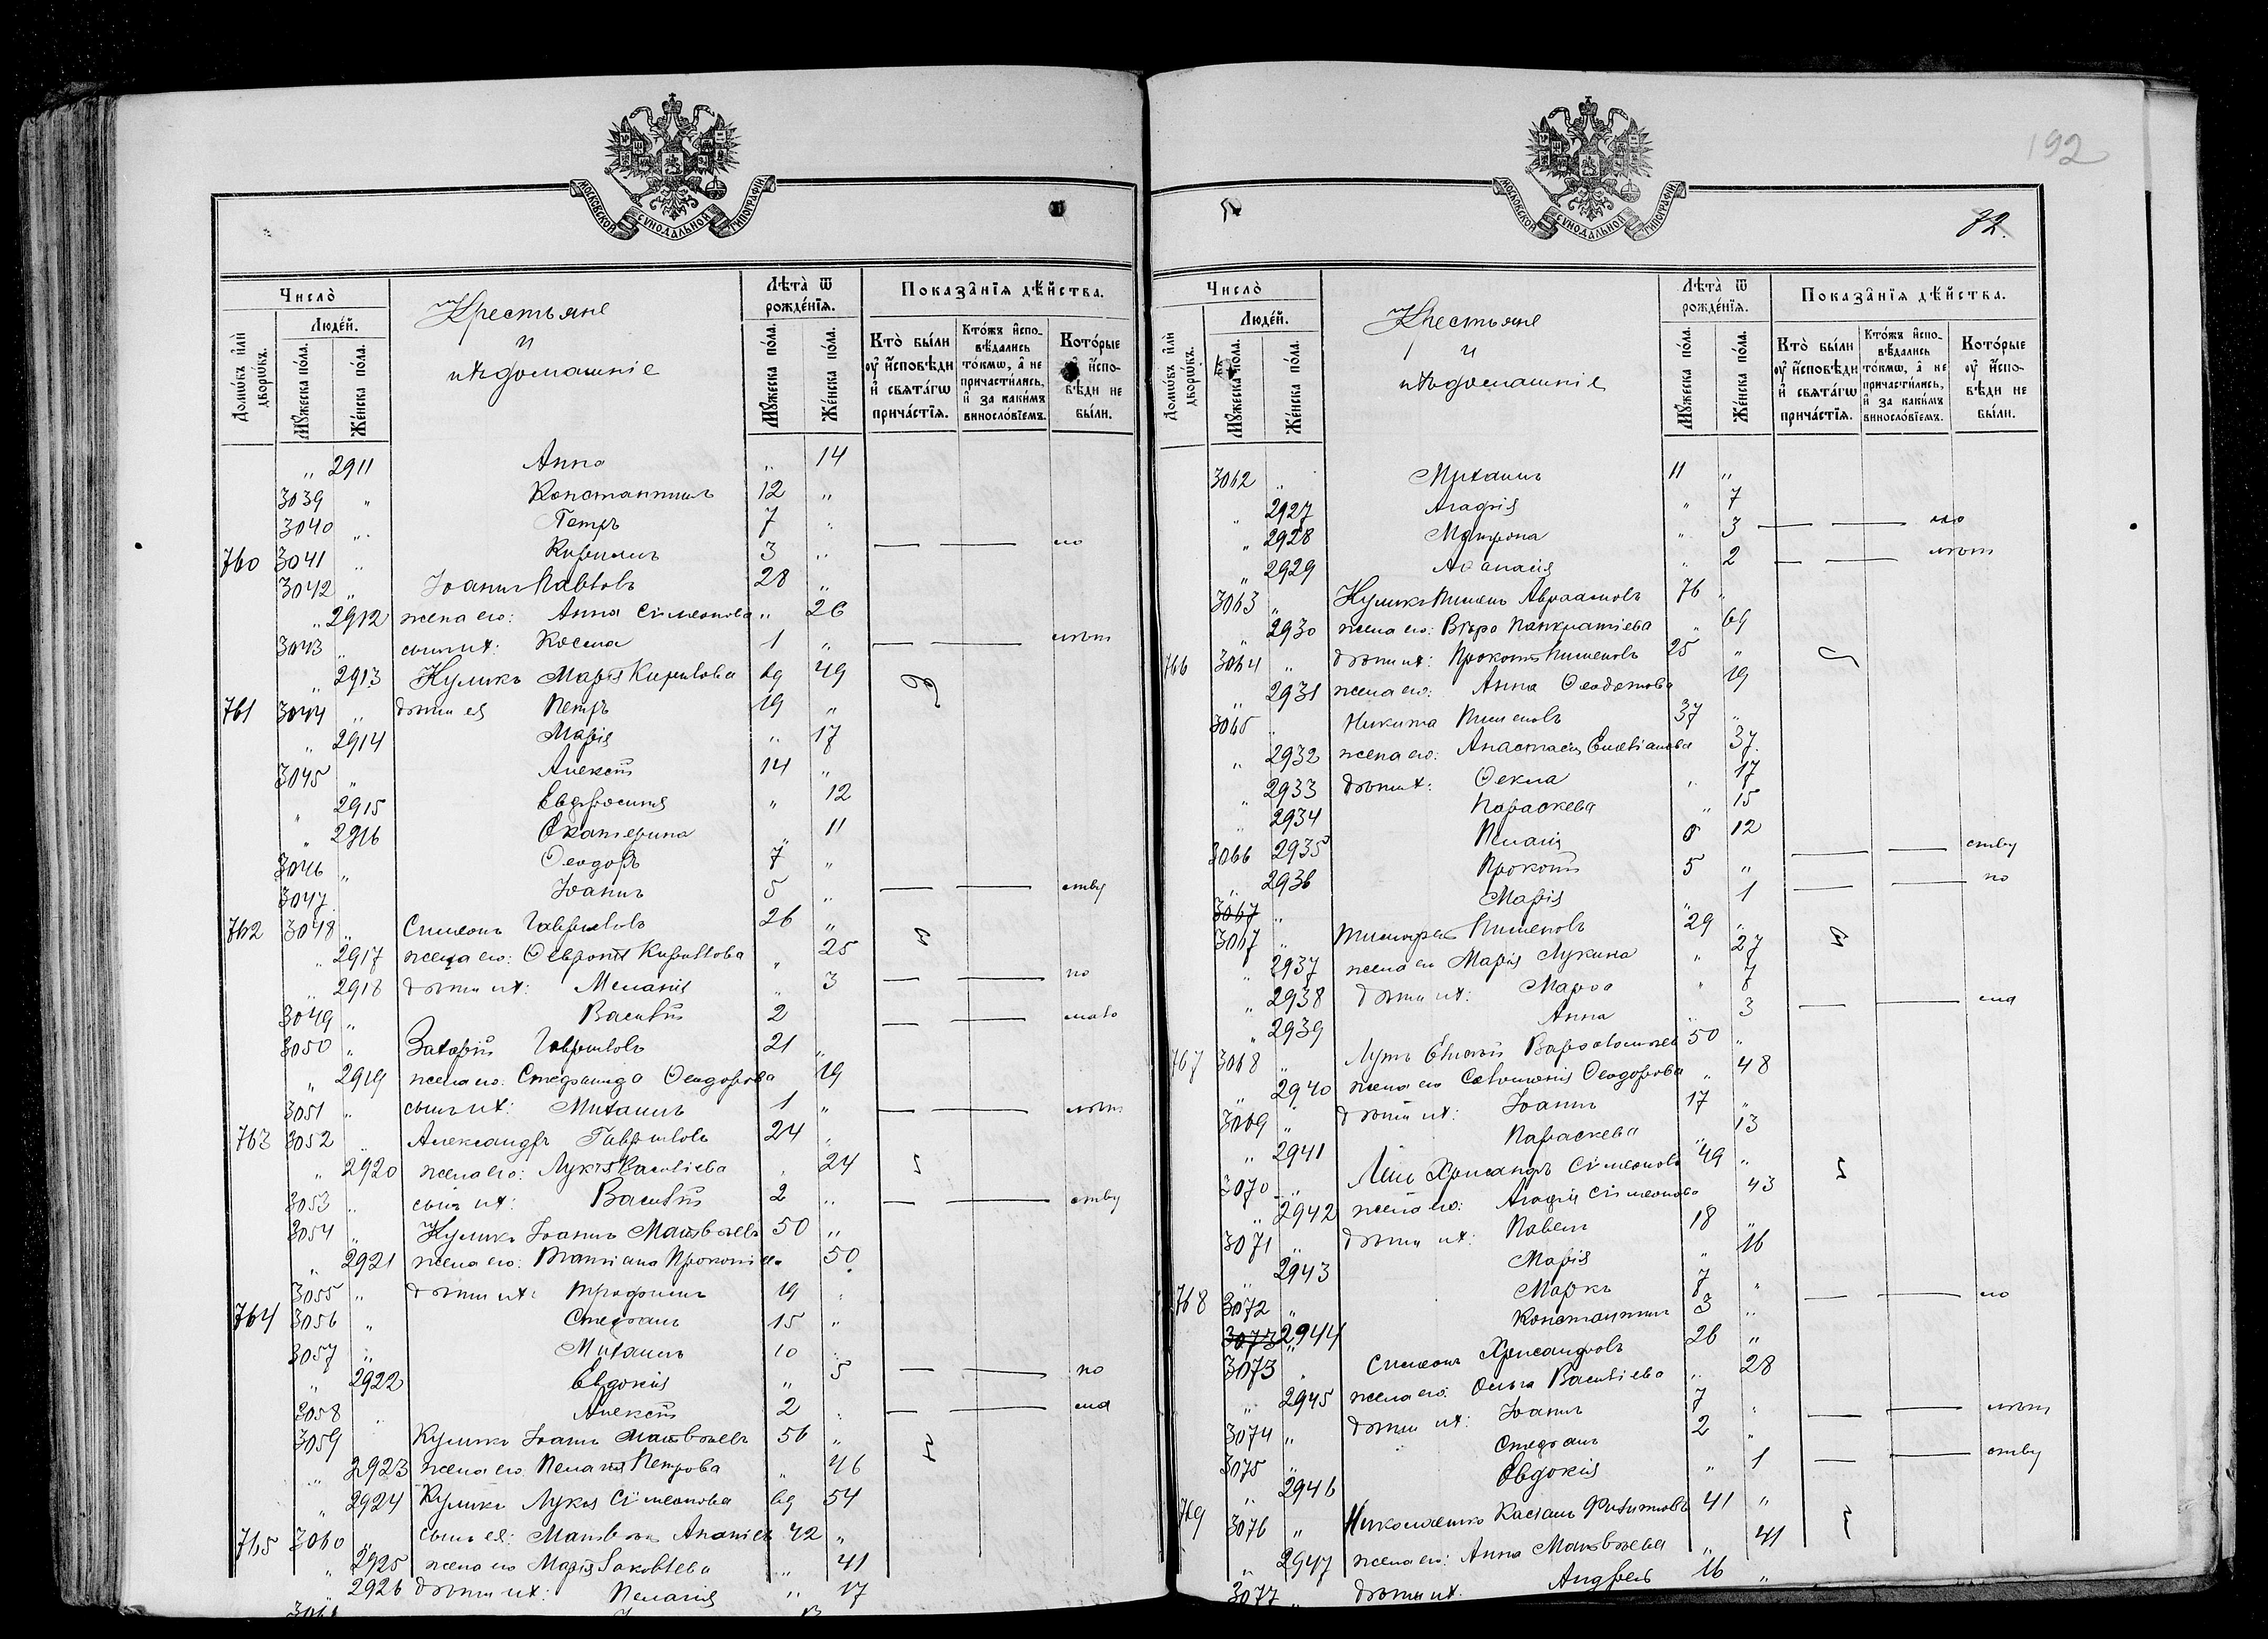 192
72.
МОСКОВСКОЙ СУНОДАЛЬНОЙ ТИПОГРАФІИ
Число̀ Крестьяне и ихъ домашніе Лѣта̀ ѿ рожде́нїѧ. Показа̑нїѧ дѣ́йства.
Домѡ́въ и҆лѝ дворѡ́въ. Люде́й. Мꙋ́жеска по́ла. Же́нска по́ла. Мꙋ́жеска по́ла. Же́нска по́ла. Кто̀ бы́ли ᲂу҆ и҆́сповѣди и҆ свѧта́гѡ прича́стїѧ. Кто́жъ и҆спо- вѣ́дались то́кмѡ, а҆ не причасти́лись, и҆ за каки́мъ винослóвїемъ. Кото́рые ᲂу҆ и҆́спо- вѣди не бы́ли.
„ 2911 Анна „ 14
3039 „ Константинъ 12 „
3040 „ Петръ 7 „
760 3041 „ Кириллъ 3 „ — — ло
3042 „ Іоаннъ Павловъ 28 „
„ 2912 жена его: Анна Сімеонова „ 26
3043 „ сынъ их: Косма 1 „ — — лѣт
„ 2913 Куликъ Марія Кирилова вд 49
761 3044 „ дѣти ея Петръ 19 „
„ 2914 Марія „ 17
3045 „ Алексій 14 „
„ 2915 Евфросинія „ 12
„ 2916 Екатерина „ 11
3046 „ Ѳеодоръ 7 „
3047 Іоаннъ 5 „ — — ству
762 3048 „ Симеонъ Гавриловъ 26 „
„ 2917 жена его: Ѳевронія Кирилова „ 25
„ 2918 дѣти их: Меланія „ 3 — — по
3049 „ Василій 2 — — мало
3050 „ Захарій Гавриловъ 21 „
„ 2919 жена его: Стефанида Ѳеодорова 19
3051 „ сынъ их: Михаилъ 1 „ — — лѣт
763 3052 „ Александръ Гавриловъ 24 „
„ 2920 жена его: Лукія Василіева „ 24
3053 „ сынъ их: Василій 2 „ — — ству
3054 „ Куликъ Іоаннъ Матвѣевъ 50 „
„ 2921 жена его: Татіана Прокопіева 50
3055 „ дѣти их: Трофимъ 19 „
764 3056 „ Стефанъ 15 „
3057 „ Михаилъ 10 „
„ 2922 Евдокія „ 5 — — по
3058 Алексій 2 „ — — ма
3059 Куликъ Іоаннъ Матвѣевъ 56 „
„ 2923 жена его Пелагія Петрова „ 46
„ 2924 Куликъ Лукія Сімеонова вд 54
765 3060 „ сынъ ея: Матвѣй Ананіевъ 42 „
„ 2925 жена его Марія Іаковлева „ 41
„ 2926 дѣти их: Пелагія „ 17
Число̀ Крестьяне и ихъ домашніе Лѣта̀ ѿ рожде́нїѧ. Показа̑нїѧ дѣ́йства.
Домѡ́въ и҆лѝ дворѡ́въ. Люде́й. Мꙋ́жеска по́ла. Же́нска по́ла. Мꙋ́жеска по́ла. Же́нска по́ла. Кто̀ бы́ли ᲂу҆ и҆́сповѣди и҆ свѧта́гѡ прича́стїѧ. Кто́жъ и҆спо- вѣ́дались то́кмѡ, а҆ не причасти́лись, и҆ за каки́мъ винослóвїемъ. Кото́рые ᲂу҆ и҆́спо- вѣди не бы́ли.
3062 „ Михаилъ 11 „
„ 2927 Агафія „ 7
„ 2928 Матрона „ 3 — — ло
„ 2929 Аѳанасія „ 2 — — лѣт
3063 „ Куликъ Пименъ Авраамовъ 76 „
„ 2930 жена его: Вѣра Панкратіева „ 69
766 3064 „ дѣти их: Прокопій Пименовъ 25 „
„ 2931 жена его: Анна Ѳеодотова 19
3065 „ Никита Пименовъ 37 „
„ 2932 жена его: Анастасія Емеліанова 37.
„ 2933 дѣти их: Ѳекла „ 17
„ 2934 Параскева „ 15
3066 2935 Пелагія 12
„ 2936 Прокопій 5 „ — — ству
3067 „ Марія „ 1 — — по
3067 „ Тимоѳей Пименовъ 29 „
„ 2937 жена его Марія Лукина „ 27
„ 2938 дѣти их: Марѳа „ 7
„ 2939 Анна „ 3 — — ма
767 3068 „ Варѳоломеевъ 50 „
„ 2940 жена его Соломонія Ѳеодорова „ 48
3069 „ дѣти их: Іоаннъ 17 „
„ 2941 Параскева 13
3070 „ Хрисанфъ Сімеоновъ 49 „
„ 2942 жена его: Агафія Сімеонова 43
3071 „ дѣти их: Павелъ 18 „
„ 2943 Марія „ 16
768 3072 „ Маркъ 7 „ — — ло
3073 2944 Константинъ 3 „
3073 „ Симеонъ Хрисанфовъ 26 „
„ 2945 жена его: Ольга Василіева „ 28
3074 „ дѣти их: Іоаннъ 7 „ — — лѣт
3075 „ Стефанъ 2 „
„ 2946 Евдокія „ 1 — — ству
769 3076 „ Николаенко Касіанъ Филиповъ 41 „
„ 2947 жена его: Анна Матвѣева „ 41
3077 „ дѣти их: Андрей 16 „